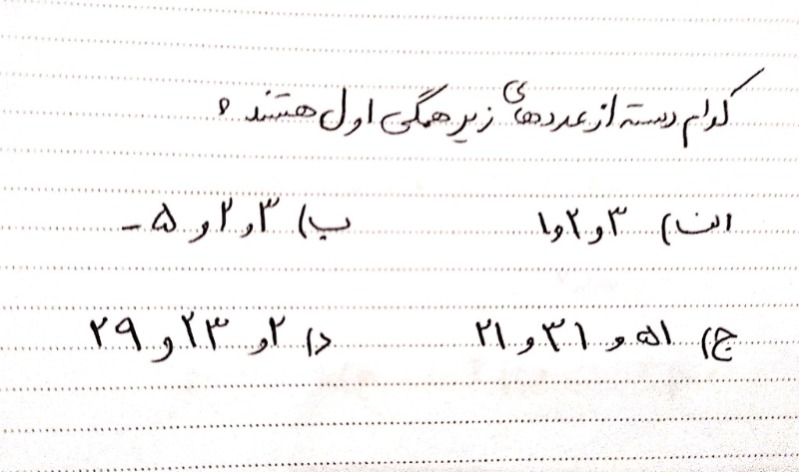 کدام دسته از عددهای زیر همگی اول هستند ؟
الف) ۳ و ۲ و ۱ ب) ۳ و ۲ و ۵ -
ج) ۵۱ و ۳۱ و ۲۱ د) ۲ و ۲۳ و ۲۹